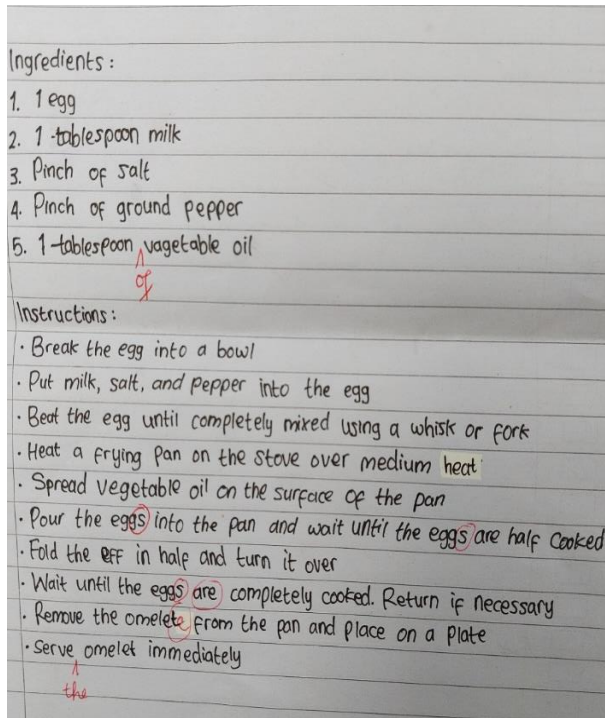 Ingredients :
1. 1 egg
2. 1 tablespoon milk
3. Pinch of salt
4. Pinch of ground pepper
5. 1 tablespoon vagetable oil
of
Instructions :
· Break the egg into a bowl
· Put milk, salt, and pepper into the egg
· Beat the egg until completely mixed using a whisk or fork
· Heat a frying pan on the stove over medium heat
· Spread vegetable oil on the surface of the pan
· Pour the eggs into the pan and wait until the eggs are half cooked
· Fold the eff in half and turn it over
· Wait until the eggs are completely cooked. Return if necessary
· Remove the omelete from the pan and place on a plate
· Serve omelet immediately
the